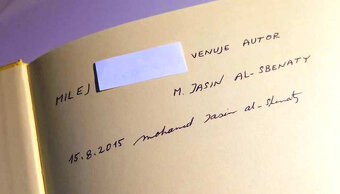 MILEJ VENUJE AUTOR
M. JASIN AL-SBENATY
15.8.2015 mohamed Jasin al-Sbenaty